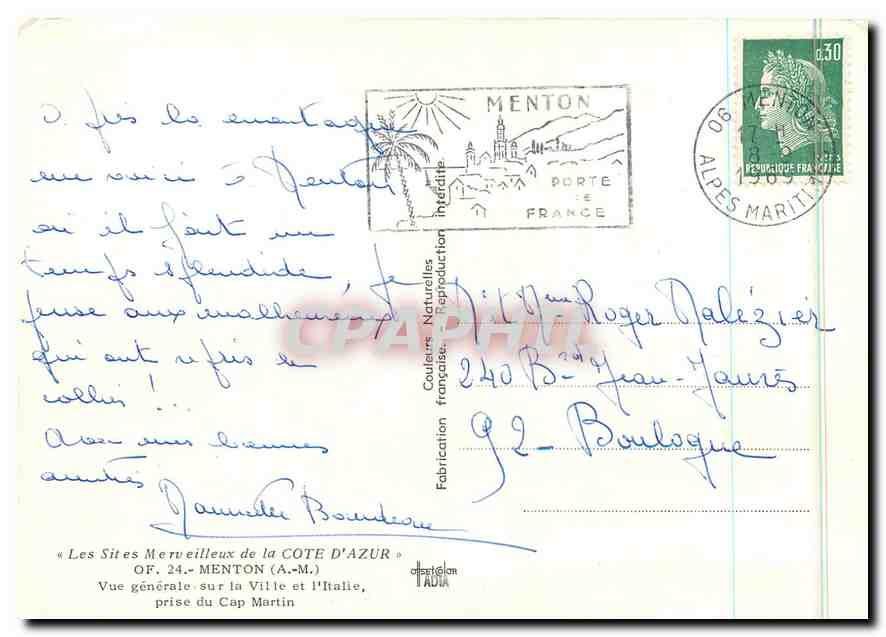 MENTON
PORTE
DE
FRANCE
0,30
REPUBLIQUE FRANÇAISE
06 MENTON
17 H
8
1969
ALPES MARITIMES
la montagne
me voici à Menton
où il fait un
temps splendide, je
pense aux malheureux
qui ont repris le
collier !...
Avec mes bonnes
amitiés
Mr et Mme Roger Malézier
240 Bd Jean-Jaurès
92 - Boulogne
Couleurs Naturelles
Fabrication française. Reproduction interdite.
CPAPHIL
« Les Sites Merveilleux de la COTE D'AZUR »
OF. 24.- MENTON (A.-M.)
Vue générale sur la Ville et l'Italie,
prise du Cap Martin
offset color
TADIA